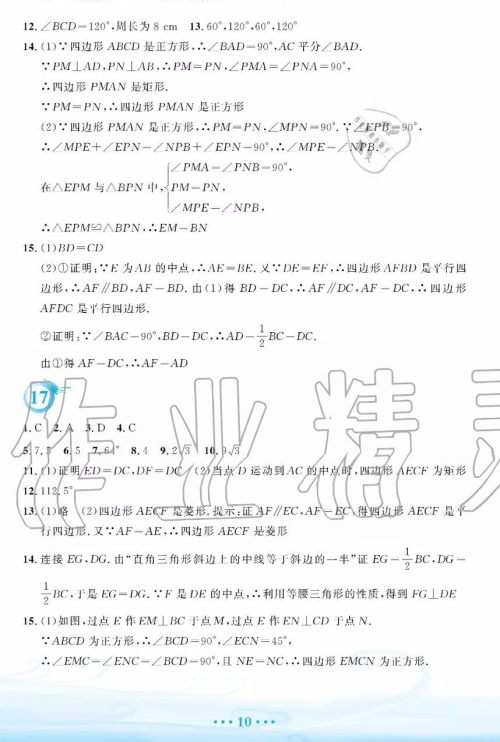 12. ∠BCD=120°,周长为 8 cm  13. 60°,120°,60°,120°
14. (1)∵四边形 ABCD 是正方形,∴∠BAD=90°,AC 平分∠BAD.
∵PM⊥AD,PN⊥AB,∴PM=PN,∠PMA=∠PNA=90°.
∴四边形 PMAN 是矩形.
∵PM=PN,∴四边形 PMAN 是正方形
(2)∵四边形 PMAN 是正方形,∴PM=PN,∠MPN=90°.∵∠EPB=90°,
∴∠MPE+∠EPN=∠NPB+∠EPN=90°,∴∠MPE=∠NPB.
在△EPM 与△BPN 中,{∠PMA=∠PNB=90°,
PM=PN,
∠MPE=∠NPB,
∴△EPM≌△BPN,∴EM=BN
15. (1)BD=CD
(2)①证明:∵E 为 AB 的中点,∴AE=BE.又∵DE=EF,∴四边形 AFBD 是平行四
边形,∴AF∥BD,AF=BD.由(1)得 BD=DC,∴AF∥DC,AF=DC,∴四边形
AFDC 是平行四边形.
②证明:∵∠BAC=90°,BD=DC,∴AD=1/2BC=DC.
由①得 AF=DC,∴AF=AD
17
1. C  2. A  3. D  4. C
5. 7.5  6. 5  7. 64°  8. 4  9. 2√3  10. 9√3
11. (1)证明 ED=DC,DF=DC  (2)当点 D 运动到 AC 的中点时,四边形 AECF 为矩形
12. 112.5°
13. (1)略  (2)四边形 AECF 是菱形.提示:证 AF∥EC,AF=EC,得四边形 AECF 是平
行四边形.又∵AF=AE,∴四边形 AECF 是菱形
14. 连接 EG,DG.由“直角三角形斜边上的中线等于斜边的一半”证 EG=1/2BC,DG=
1/2BC,于是 EG=DG.∵F 是 DE 的中点,∴利用等腰三角形的性质,得到 FG⊥DE
15. (1)如图,过点 E 作 EM⊥BC 于点 M,过点 E 作 EN⊥CD 于点 N.
∵ABCD 为正方形,∴∠BCD=90°,∠ECN=45°,
∴∠EMC=∠ENC=∠BCD=90°,且 NE=NC,∴四边形 EMCN 为正方形.
10
作业精灵